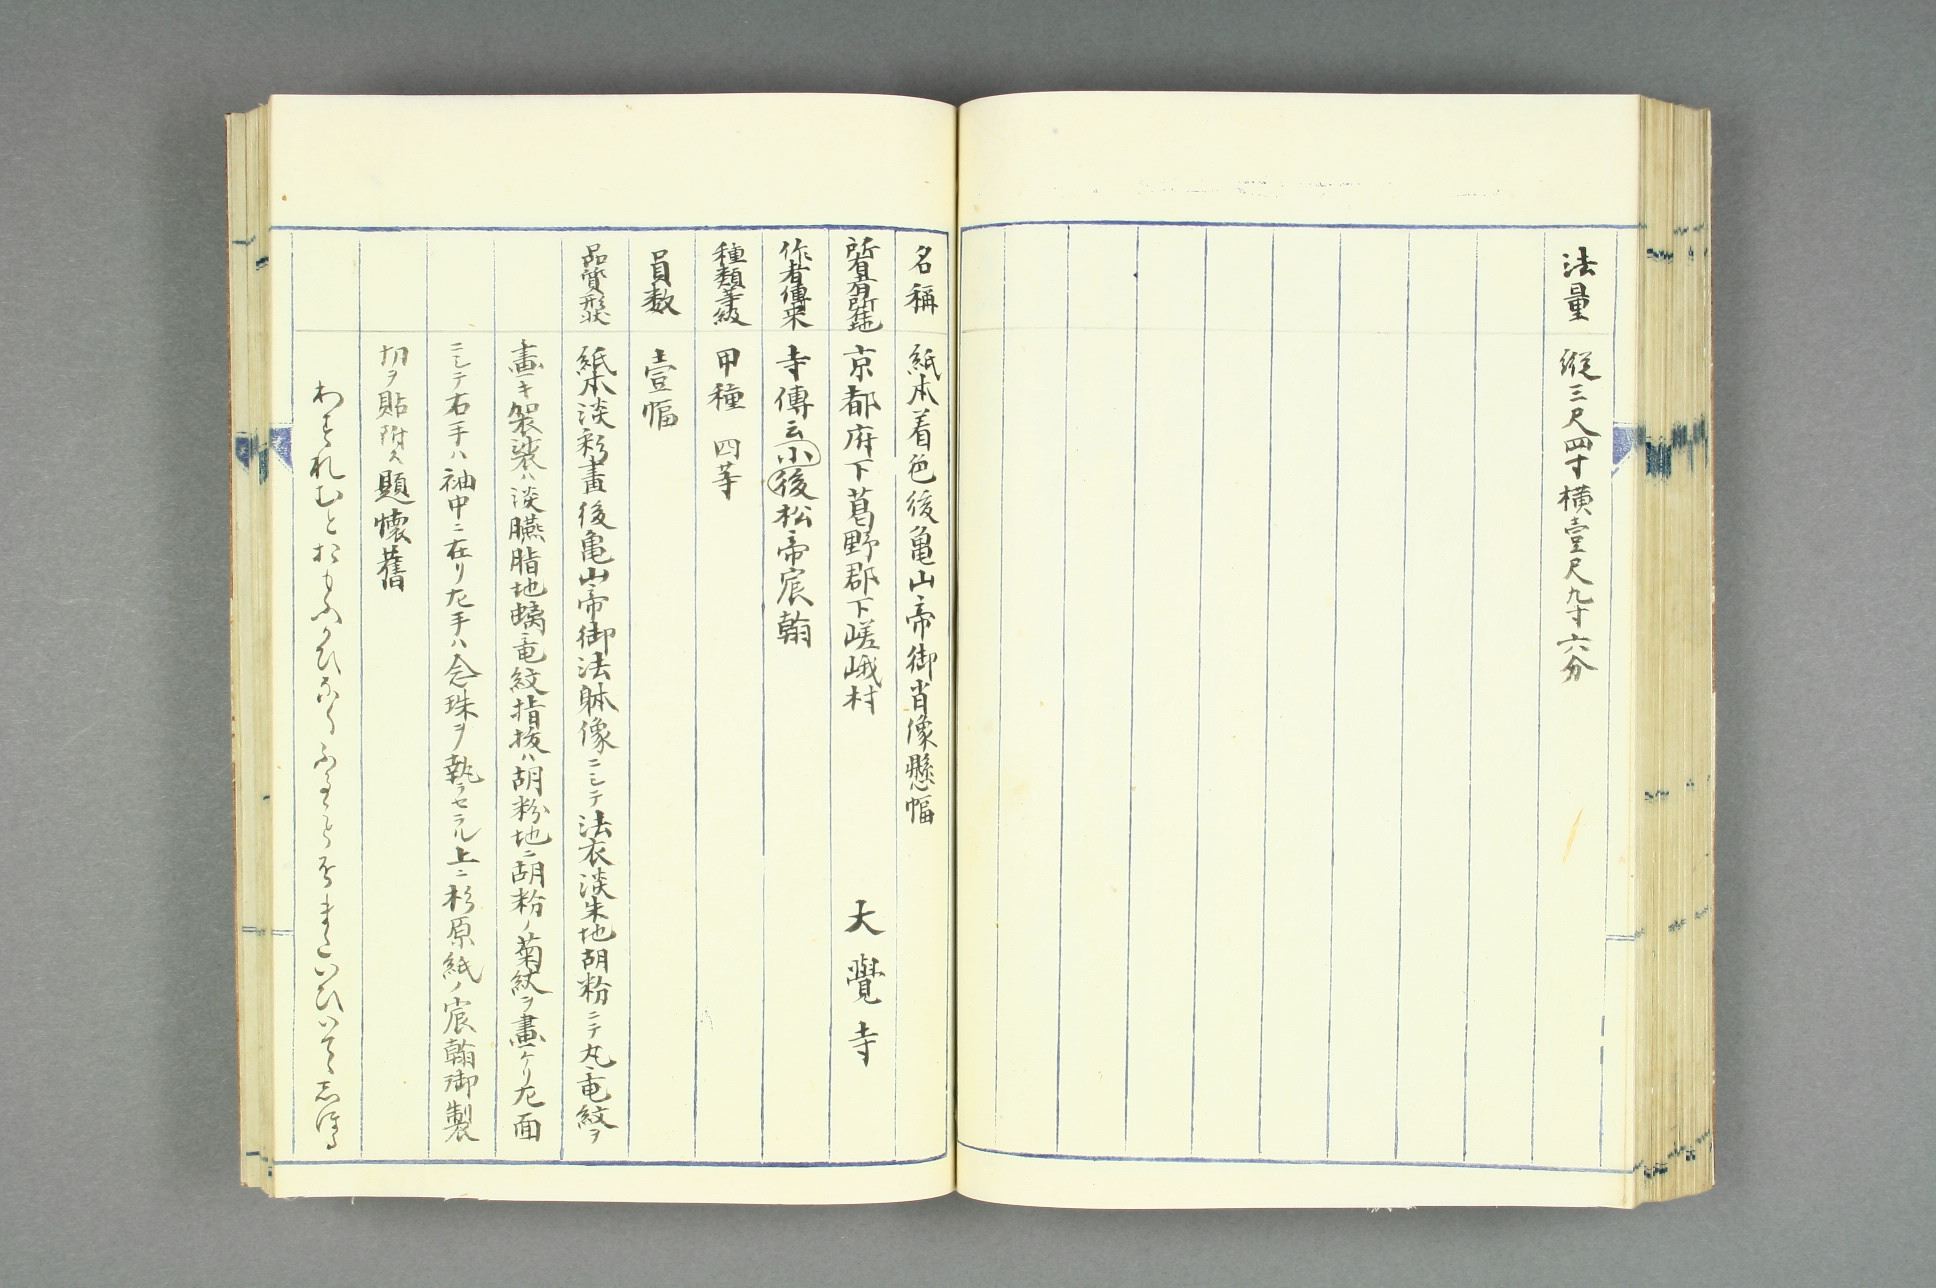 法量 縦三尺四寸横壹尺九寸六分
名稱 紙本着色後亀山帝御肖像懸幅
所有者所在地 京都府下葛野郡下嵯峨村 大覺寺
作者傳来 寺傳云小後松帝宸翰
種類等級 甲種 四等
員数 壹幅
品質形状 紙本淡彩畫後亀山帝御法躰像ニシテ法衣淡朱地胡粉ニテ丸竜紋ヲ
畫キ袈裟ハ淡臙脂地螭竜紋指抜ハ胡粉地ニ胡粉ノ菊紋ヲ畫ケリ左面
ニシテ右手ハ袖中ニ在リ左手ハ念珠ヲ執ラセラル上ニ杉原紙ノ宸翰御製
切ヲ貼附ス題懐舊
わすれむとおもふかひなく